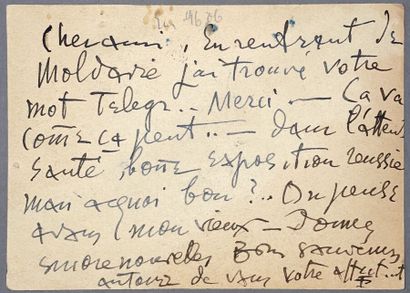 Cher ami, En rentrant de
Moldavie j'ai trouvé votre
mot Telegr.. Merci — Ca va
come ça peut.. — dans l'attente
santé, bone exposition reussie
mais aquoi bon ?.. On pense
avans mon vieux — Donnez
encore nouvelles Bons souvenirs
autour de vous votre affect..t